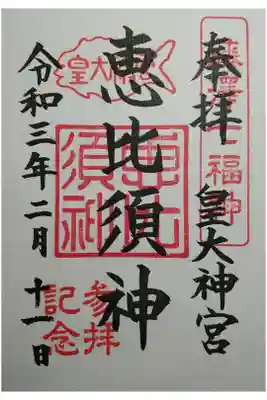 藤澤七福神
奉拝 皇大神宮
恵比須神
令和三年二月十一日
皇大
須神
参拝
記念